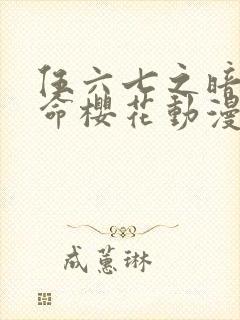 伍六七之暗
命櫻花動漫
成蕙琳